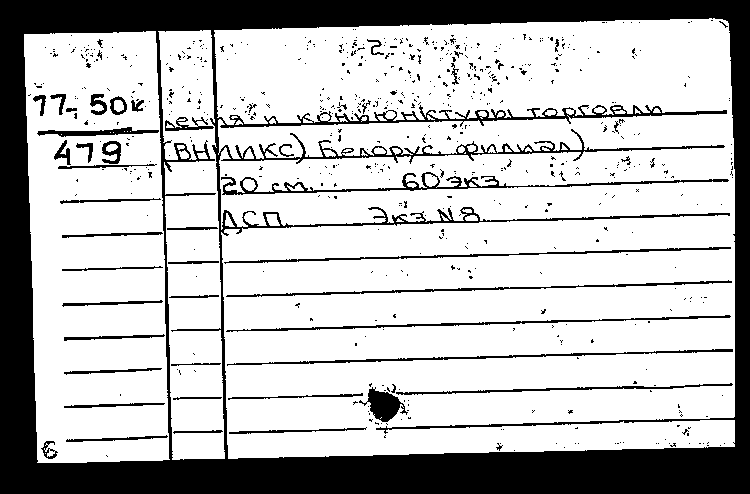 -2-
77-50к
479
ления и конъюнктуры торговли
(ВНИИКС) Белорус. филиал)
20 см. 60 экз.
ДСП. Экз. N8.
6